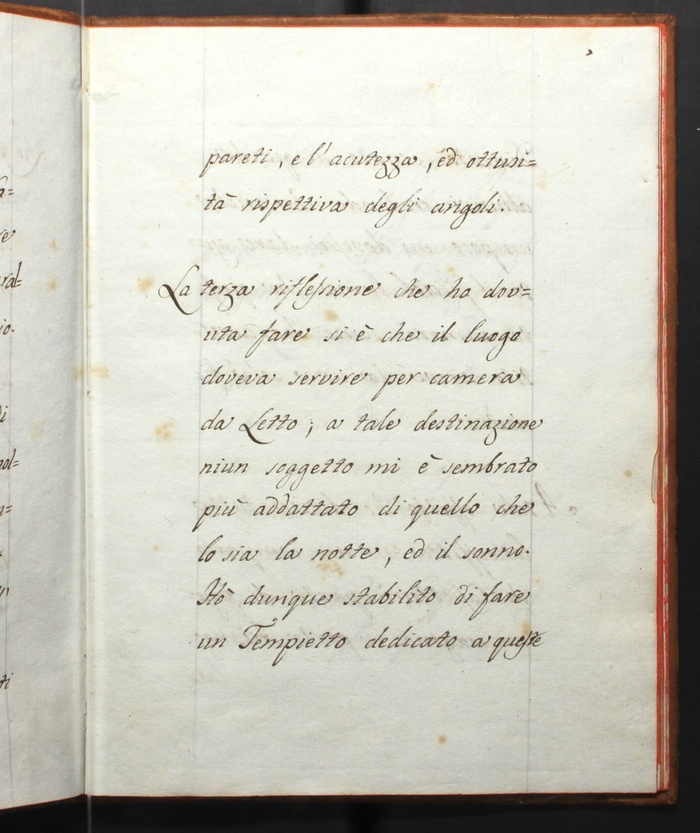 pareti, e l'acutezza, ed ottusi=
tà rispettiva degli angoli.
La terza riflessione che ho dov=
uta fare si è che il luogo
doveva servire per camera
da Letto; a tale destinazione
niun soggetto mi è sembrato
più addattato di quello che
lo sia la notte, ed il sonno.
Hò dunque stabilito di fare
un Tempietto dedicato a queste